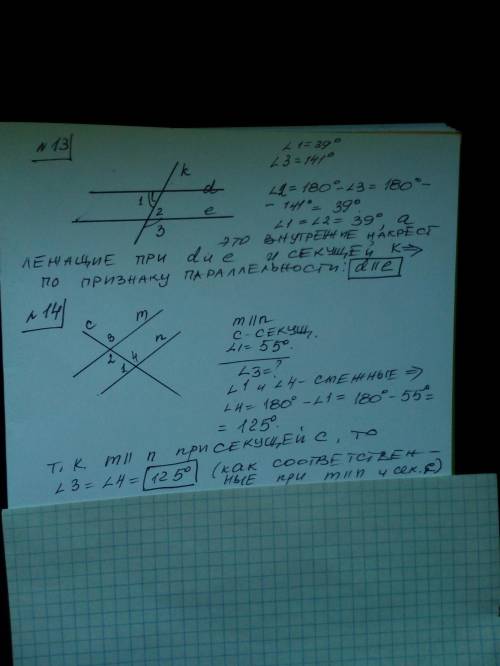 N13
∠1=39°
∠3=141°
k
1
d
2
e
3
∠2=180°-∠3=180°-
- 141° = 39°.
∠1=∠2=39°, а
это внутренние накрест
лежащие при d и e и секущей k ⇒
по признаку параллельности: d||e
N14
c
m
n
3
2
4
1
m||n
c - секущ.
∠1=55°.
∠3=?
∠1 и ∠4 - смежные ⇒
∠4=180°-∠1=180°-55°=
= 125°.
Т.к m||n при секущей c, то
∠3=∠4= 125° (как соответствен-
ные при m||n и сек. c)